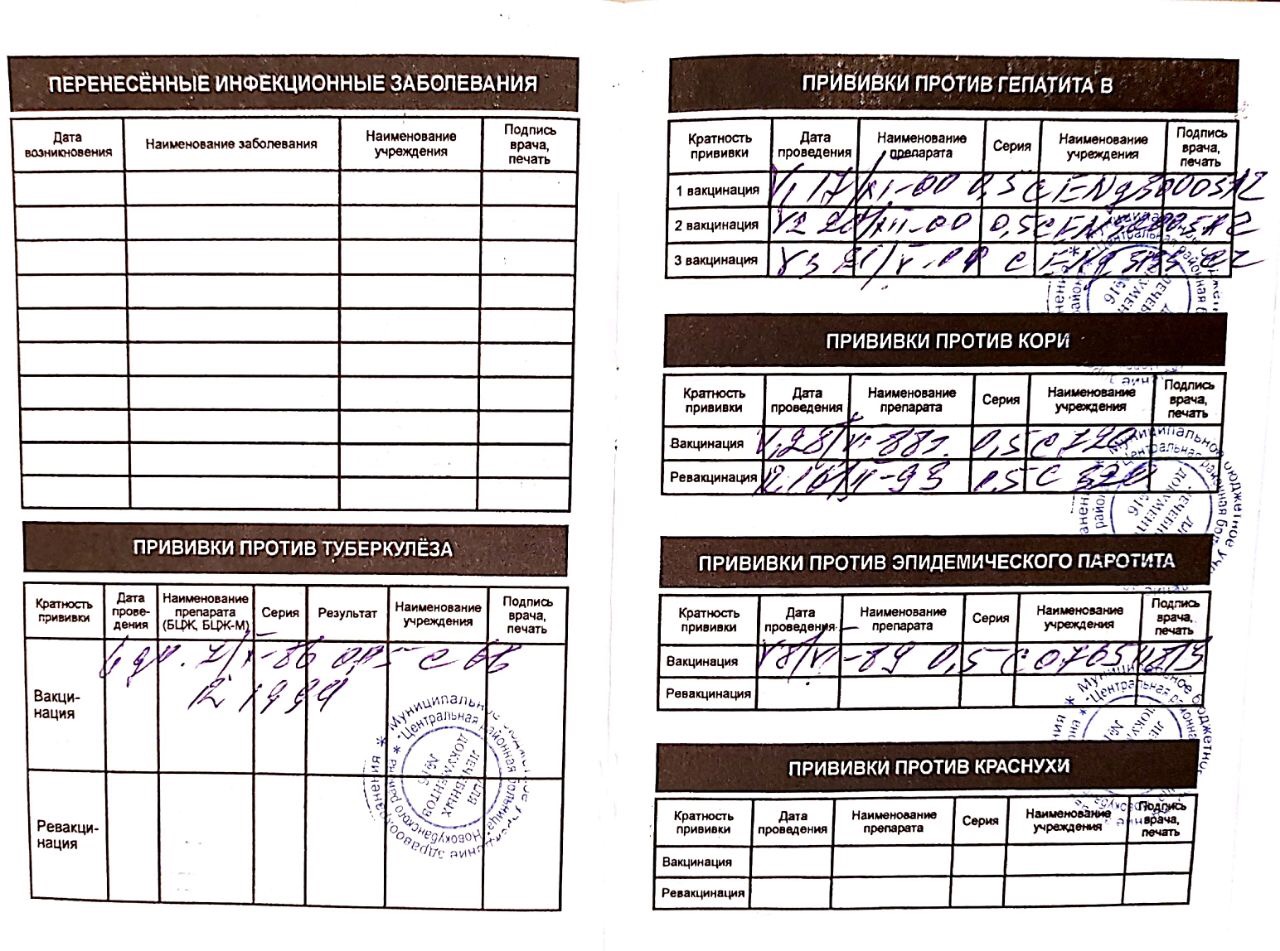 ПЕРЕНЕСЁННЫЕ ИНФЕКЦИОННЫЕ ЗАБОЛЕВАНИЯ
Дата возникновения Наименование заболевания Наименование учреждения Подпись врача, печать
ПРИВИВКИ ПРОТИВ ТУБЕРКУЛЁЗА
Кратность прививки Дата прове-дения Наименование препарата (БЦЖ, БЦЖ-М) Серия Результат Наименование учреждения Подпись врача, печать
Вакци-нация
Ревакци-нация
Муниципальное
"Центральная районная больница"
Новокубанского района
ДЛЯ
ЛЕЧЕБНЫХ
ДОКУМЕНТОВ
№16
ПРИВИВКИ ПРОТИВ ГЕПАТИТА В
Кратность прививки Дата проведения Наименование препарата Серия Наименование учреждения Подпись врача, печать
1 вакцинация V1 17/XI-00 0,5 с
2 вакцинация V2 0,5 с
3 вакцинация V3
ПРИВИВКИ ПРОТИВ КОРИ
Кратность прививки Дата проведения Наименование препарата Серия Наименование учреждения Подпись врача, печать
Вакцинация 0,5 с
Ревакцинация 0,5 с
ПРИВИВКИ ПРОТИВ ЭПИДЕМИЧЕСКОГО ПАРОТИТА
Кратность прививки Дата проведения Наименование препарата Серия Наименование учреждения Подпись врача, печать
Вакцинация 0,5 с
Ревакцинация
ПРИВИВКИ ПРОТИВ КРАСНУХИ
Кратность прививки Дата проведения Наименование препарата Серия Наименование учреждения Подпись врача, печать
Вакцинация
Ревакцинация